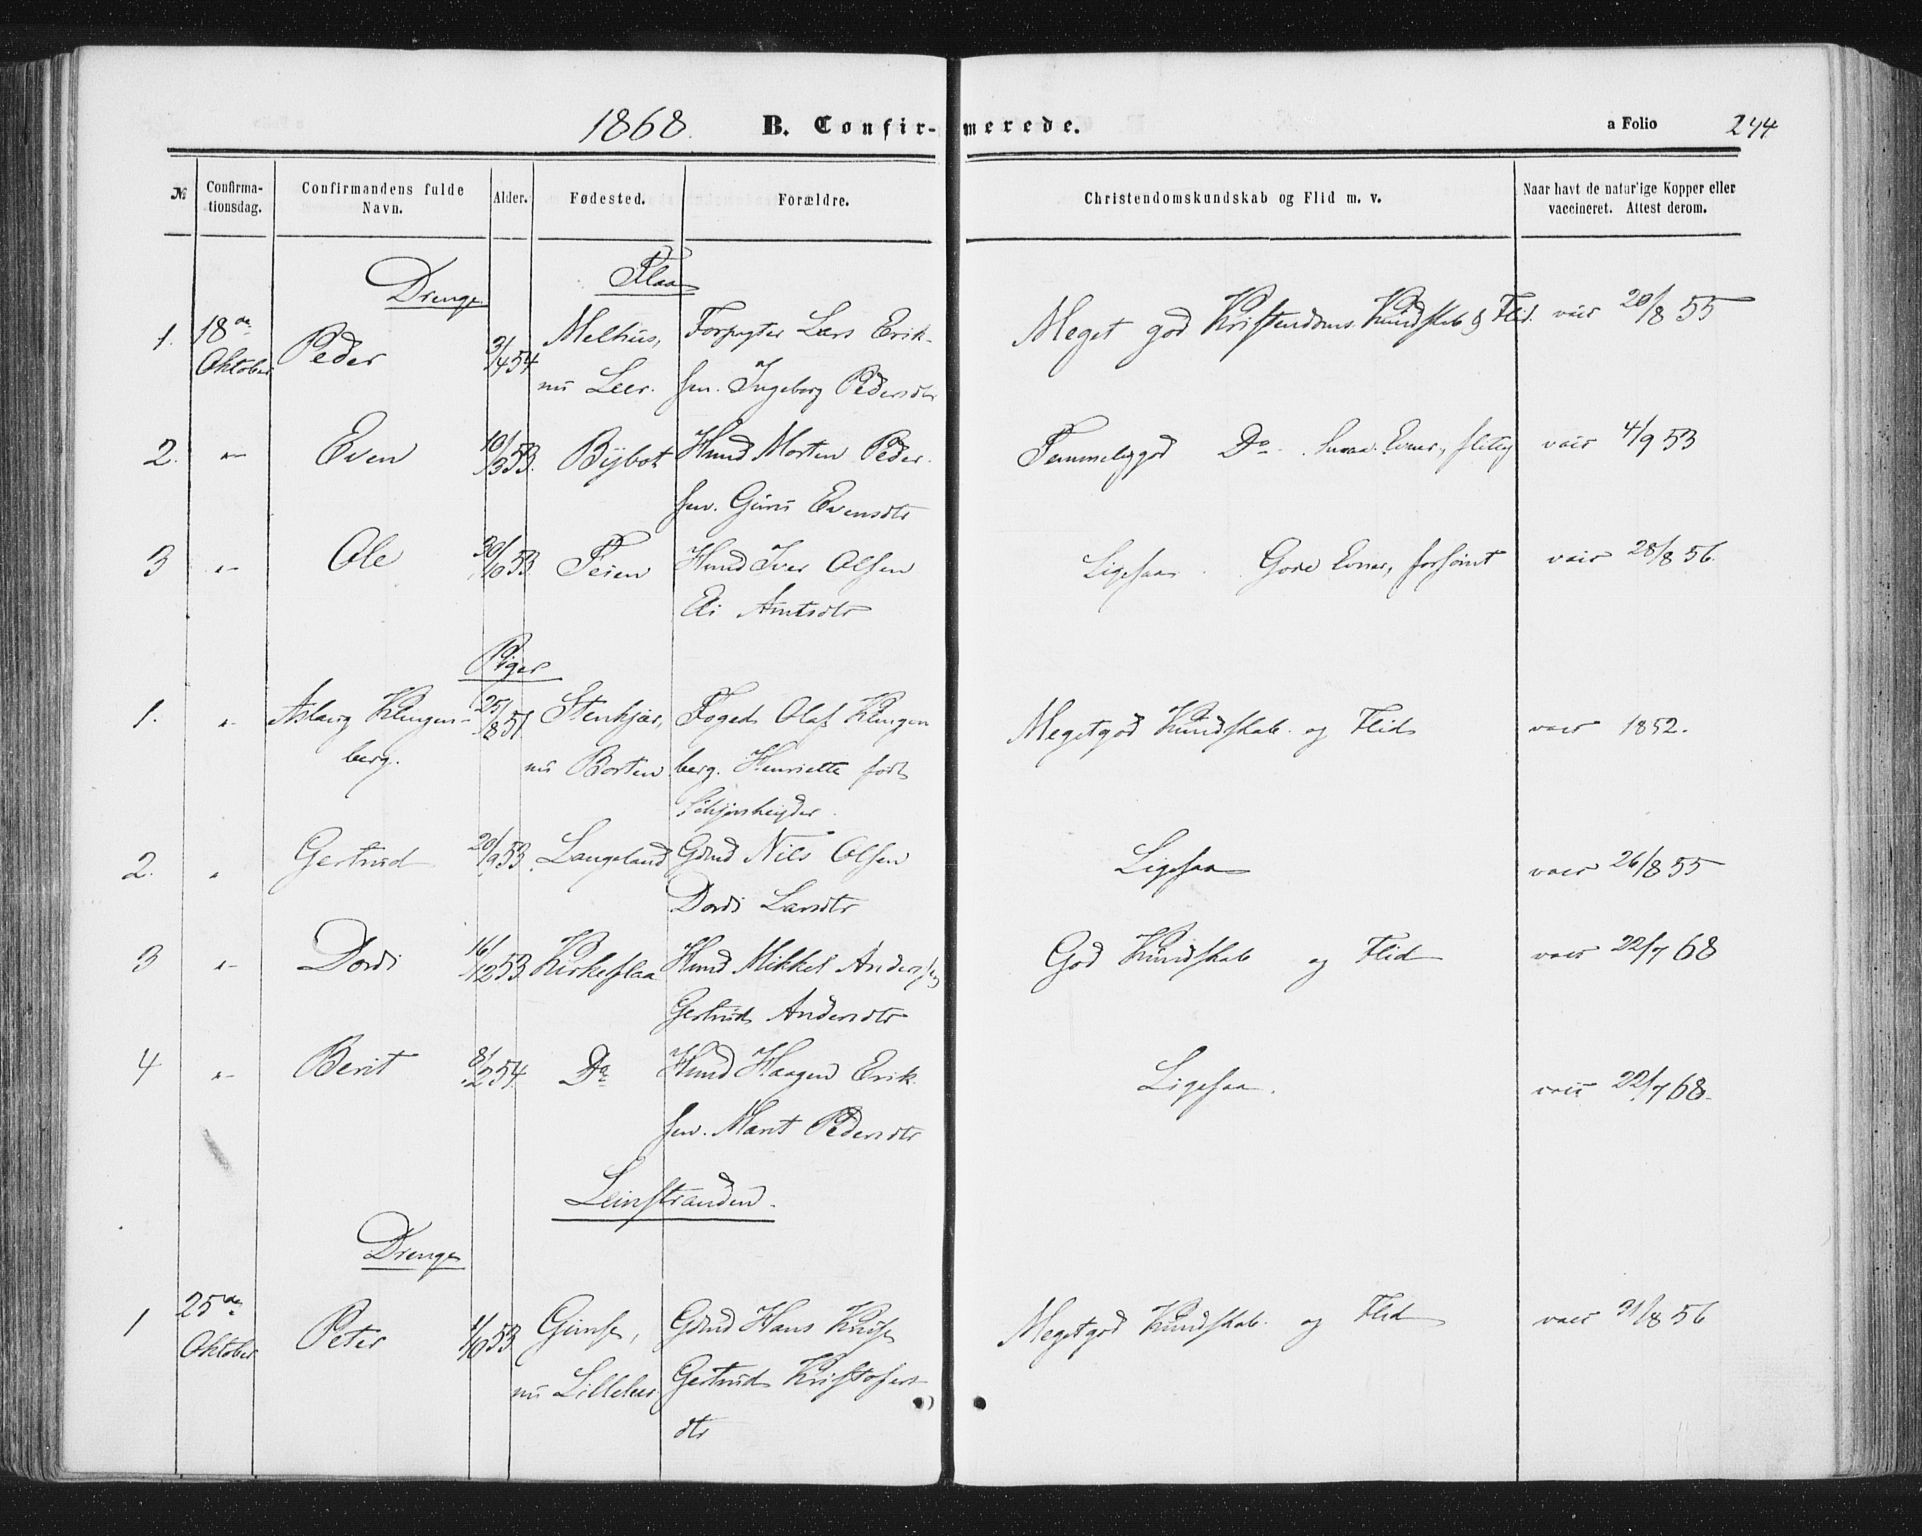 1868. B. Confirmerede. a Folio 244
№ Confirmationsdag. Confirmandens fulde Navn. Alder. Fødested. Forældre. Christendomskundskab og Flid m. v. Naar havt de naturlige Kopper eller vaccineret. Attest derom.
Drenge Flaa
1. 18de Peder 3/4 54 Melhus, Forpagter Lars Erik- Meget god Kristendoms Kundskab & Flid. vaic 20/8 55
Oktober nu Leer. sen. Ingeborg Pedersdtr
2. " Even 10/3 53. Bybot Husmd Morten Peder- Temmelig god Do. Smaa Evner, flittig vaic 4/9 53
sen. Guru Evensdtr
3 " Ole 30/10 53 Feien Husmd Iver Olsen Ligesaa. Gode Evner, forsømt vaic 28/8 56.
Eli Arntsdtr
Piger
1. " Aslaug Klingen- 25/8 51 Stenkjær, Foged Olaf Klingen Megetgod Kundskab og Flid vacc 1852.
berg. nu Borten berg. Henriette født
Schjønheyder.
2. " Gertrud 20/9 53. Langeland Gdmd Nils Olsen Ligesaa vacc 26/8 55
Dordi Larsdtr
3 " Dordi 16/12 53 Kirkeflaa Husmd Mikkel Andersen God Kundskab og Flid vacc 22/7 68
Gertrud Andersdtr
4 " Berit 8/2 54 Do Husmd Haagen Erik- Ligesaa. vacc 22/7 68.
sen. Marit Pedersdtr
Leinstranden.
Drenge
1 25de Peter 1/10 53 Gimse, Gdmd Hans Kruse Megetgod Kundskab. og Flid vacc 31/8 56
Oktober nu Lilleleer Gertrud Kristofers
dtr